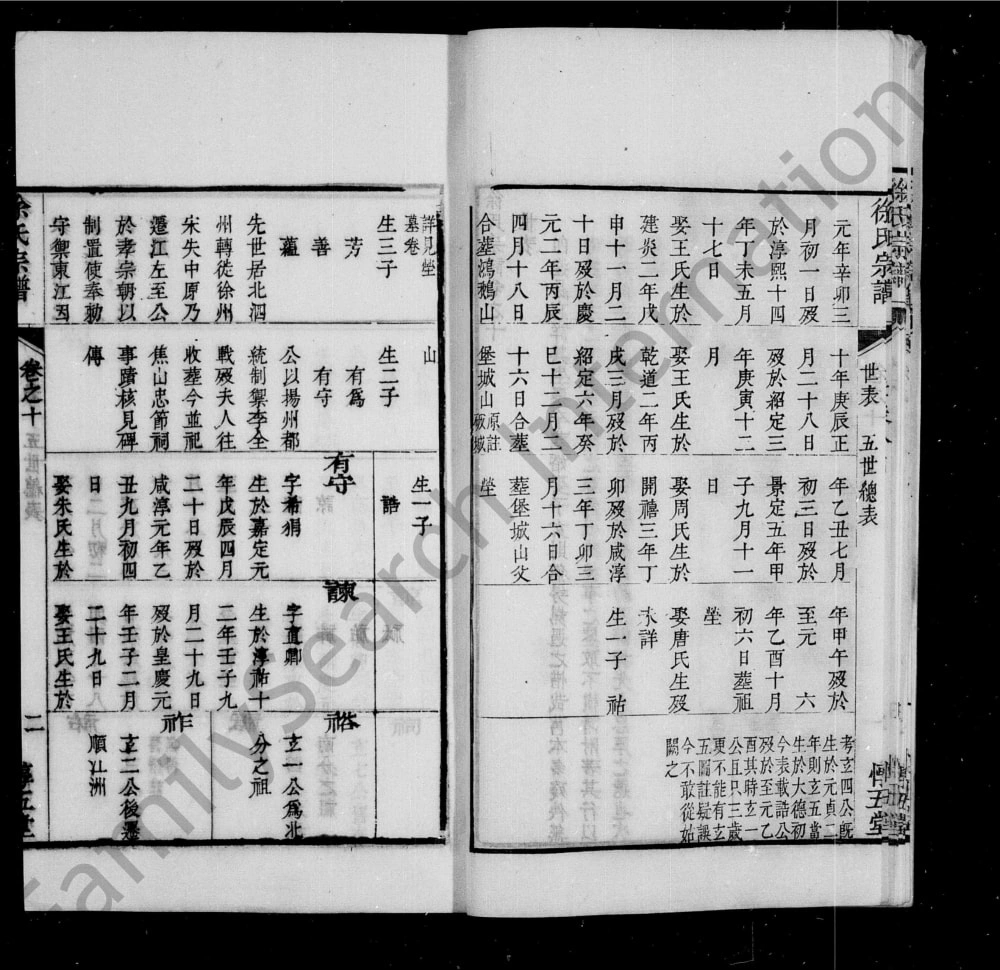 徐氏宗譜
世表
五世總表
惇五堂
元年辛卯三
月初一日歿
於淳熙十四
年丁未五月
十七日
娶王氏生於
建炎二年戊
申十一月二
十日歿於慶
元二年丙辰
四月十八日
合塟鴻鶴山
十年庚辰正
月二十八日
歿於紹定三
年庚寅十二
月
娶王氏生於
乾道二年丙
戌三月歿於
紹定六年癸
巳十二月二
十六日合塟
堡城山
年乙丑七月
初三日歿於
景定五年甲
子九月十一
日
娶周氏生於
開禧三年丁
卯歿於咸淳
三年丁卯三
月十六日合
塟堡城山父
塋
年甲午歿於
至元 六
年乙酉十月
初六日塟祖
塋
娶唐氏生歿
未詳
生一子 祐
考玄四公旣
生於元貞二
年則玄五當
生於大德初
今表載誥公
歿於至元乙
酉其時玄一
公且只三歲
更不能有玄
五圖註疑誤
今不敢從姑
闕之
詳見塋
墓卷
生三子
芳
善
蘊
先世居北泗
州轉徙徐州
宋失中原乃
遷江左至公
於孝宗朝以
制置使奉勅
守禦東江因
山
生二子
有爲
有守
公以揚州都
統制禦李全
戰歿夫人往
收塟今並祀
焦山忠節祠
事蹟核見碑
傳
生一子
誥
有守
字希狷
生於嘉定元
年戊辰四月
二十日歿於
咸淳元年乙
丑九月初四
日
娶朱氏生於
諫
字直卿
生於淳祐十
二年壬子九
月二十九日
歿於皇慶元
年壬子二月
二十九日
娶王氏生於
裕
玄一公爲北
分之祖
祚
玄二公後遷
順江洲
徐氏宗譜
卷之十
五世總表
二
惇五堂